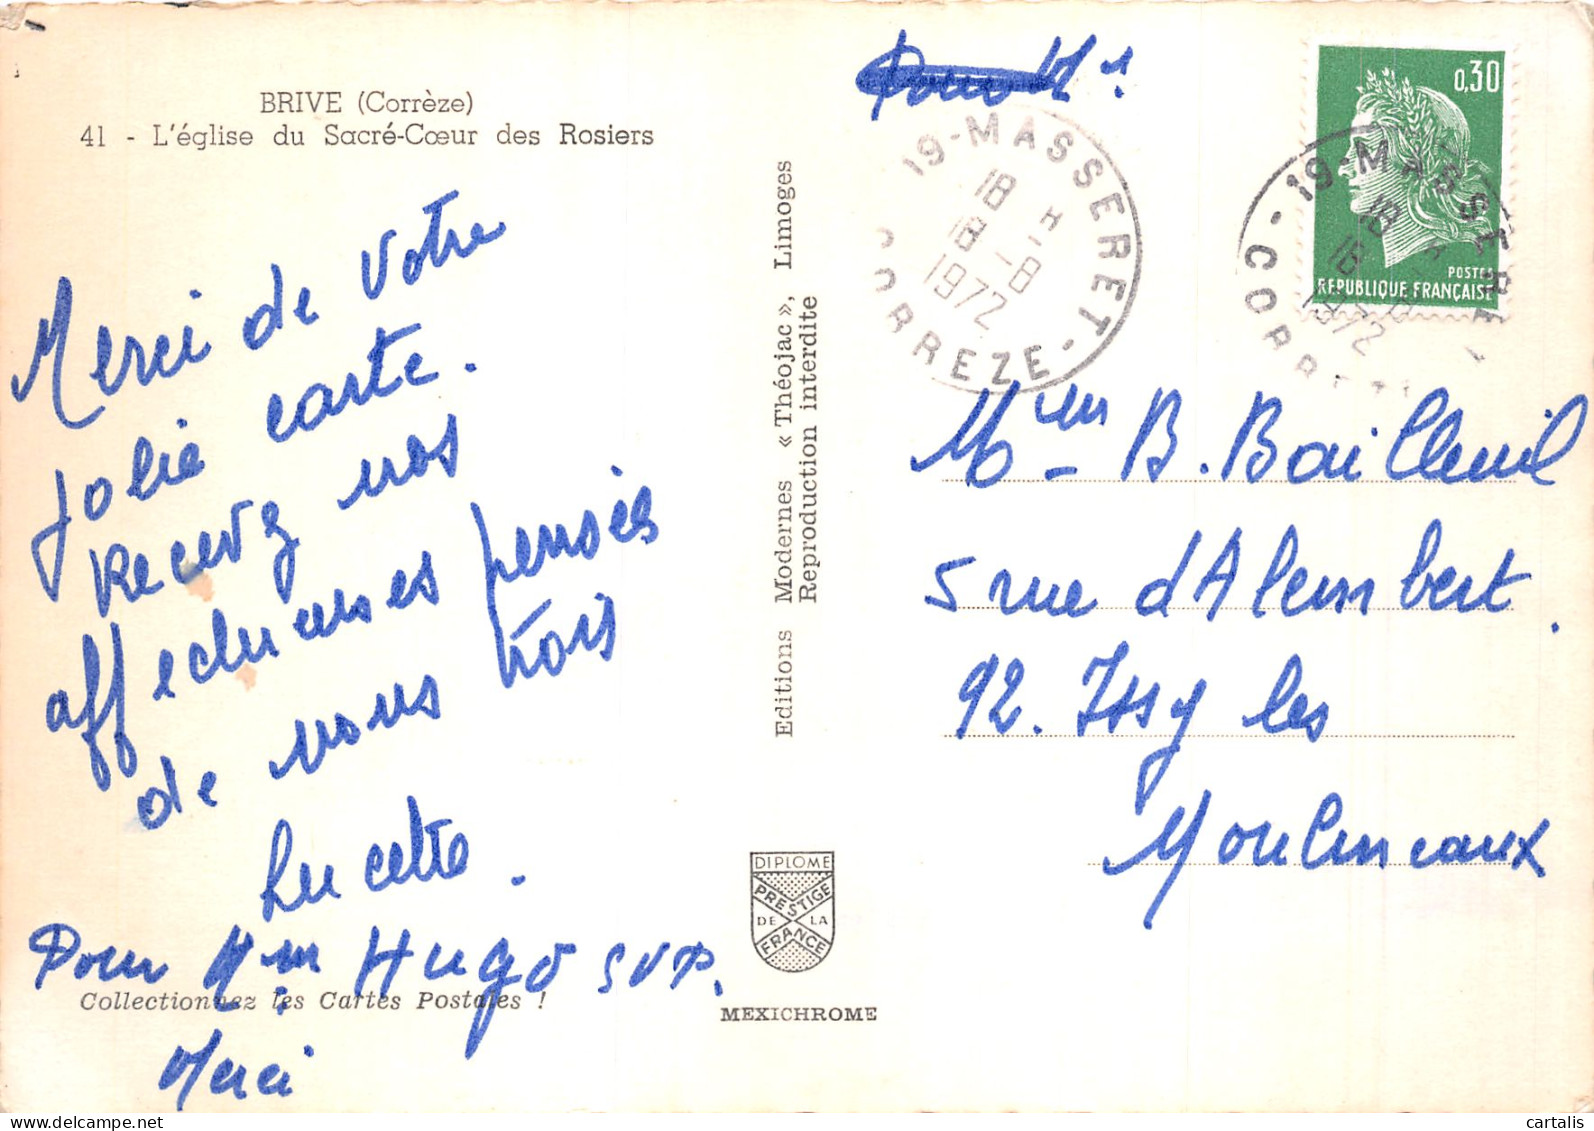 BRIVE (Corrèze)
41 - L'église du Sacré-Cœur des Rosiers
Merci de Votre
jolie carte.
Recevez nos
affectueuses pensées
de nous trois
Lucette.
Pour Mme Hugo SVP.
Merci
Collectionnez les Cartes Postales !
Editions Modernes « Théojac », Limoges
Reproduction interdite
DIPLOME
PRESTIGE
DE LA
FRANCE
MEXICHROME
19-MASSERET
18 H
18-8
1972
CORREZE
0,30
POSTES
REPUBLIQUE FRANÇAISE
19-MASSERET
18 H
18-8
1972
CORREZE
Mme B. Bailleuil
5 rue d'Alembert.
92. Issy les
Moulineaux
cartalis